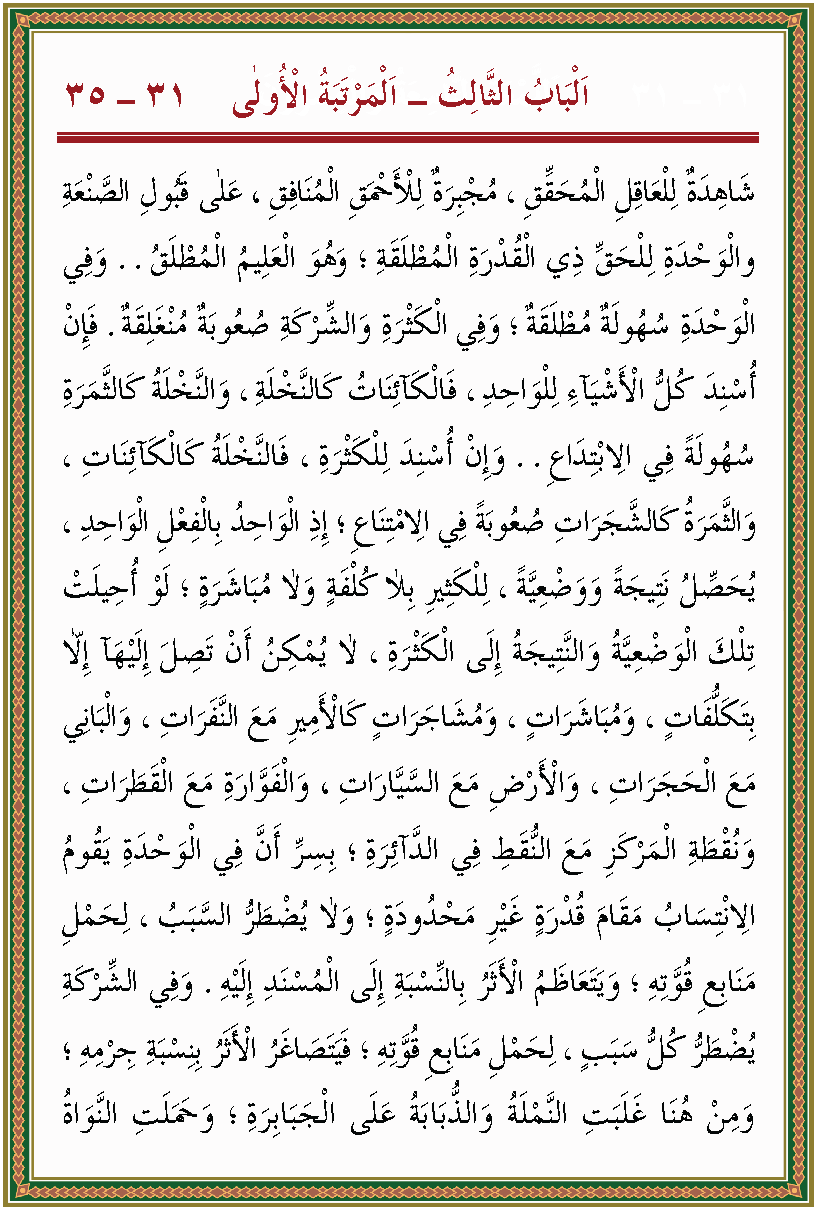 اَلْبَابُ الثَّالِثُ – اَلْمَرْتَبَةُ الْأُولٰى ٣١ – ٣٥
شَاهِدَةٌ لِلْعَاقِلِ الْمُحَقِّقِ ، مُجْبِرَةٌ لِلْأَحْمَقِ الْمُنَافِقِ ، عَلٰى قَبُولِ الصَّنْعَةِ
والْوَحْدَةِ لِلْحَقِّ ذِي الْقُدْرَةِ الْمُطْلَقَةِ ؛ وَهُوَ الْعَلِيمُ الْمُطْلَقُ . . وَفِي
الْوَحْدَةِ سُهُولَةٌ مُطْلَقَةٌ ؛ وَفِي الْكَثْرَةِ وَالشِّرْكَةِ صُعُوبَةٌ مُنْغَلِقَةٌ . فَإِنْ
أُسْنِدَ كُلُّ الْأَشْيَآءِ لِلْوَاحِدِ ، فَالْكَآئِنَاتُ كَالنَّخْلَةِ ، وَالنَّخْلَةُ كَالثَّمَرَةِ
سُهُولَةً فِي الِابْتِدَاعِ . . وَإِنْ أُسْنِدَ لِلْكَثْرَةِ ، فَالنَّخْلَةُ كَالْكَآئِنَاتِ ،
وَالثَّمَرَةُ كَالشَّجَرَاتِ صُعُوبَةً فِي الِامْتِنَاعِ ؛ إِذِ الْوَاحِدُ بِالْفِعْلِ الْوَاحِدِ ،
يُحَصِّلُ نَتِيجَةً وَوَضْعِيَّةً ، لِلْكَثِيرِ بِلَا كُلْفَةٍ وَلَا مُبَاشَرَةٍ ؛ لَوْ أُحِيلَتْ
تِلْكَ الْوَضْعِيَّةُ وَالنَّتِيجَةُ إِلَى الْكَثْرَةِ ، لَا يُمْكِنُ أَنْ تَصِلَ إِلَيْهَآ إِلَّا
بِتَكَلُّفَاتٍ ، وَمُبَاشَرَاتٍ ، وَمُشَاجَرَاتٍ كَالْأَمِيرِ مَعَ النَّفَرَاتِ ، وَالْبَانِي
مَعَ الْحَجَرَاتِ ، وَالْأَرْضِ مَعَ السَّيَّارَاتِ ، وَالْفَوَّارَةِ مَعَ الْقَطَرَاتِ ،
وَنُقْطَةِ الْمَرْكَزِ مَعَ النُّقَطِ فِي الدَّآئِرَةِ ؛ بِسِرِّ أَنَّ فِي الْوَحْدَةِ يَقُومُ
الِانْتِسَابُ مَقَامَ قُدْرَةٍ غَيْرِ مَحْدُودَةٍ ؛ وَلَا يُضْطَرُّ السَّبَبُ ، لِحَمْلِ
مَنَابِعِ قُوَّتِهِ ؛ وَيَتَعَاظَمُ الْأَثَرُ بِالنِّسْبَةِ إِلَى الْمُسْنَدِ إِلَيْهِ . وَفِي الشِّرْكَةِ
يُضْطَرُّ كُلُّ سَبَبٍ ، لِحَمْلِ مَنَابِعِ قُوَّتِهِ ؛ فَيَتَصَاغَرُ الْأَثَرُ بِنِسْبَةِ جِرْمِهِ ؛
وَمِنْ هُنَا غَلَبَتِ النَّمْلَةُ وَالذُّبَابَةُ عَلَى الْجَبَابِرَةِ ؛ وَحَمَلَتِ النَّوَاةُ